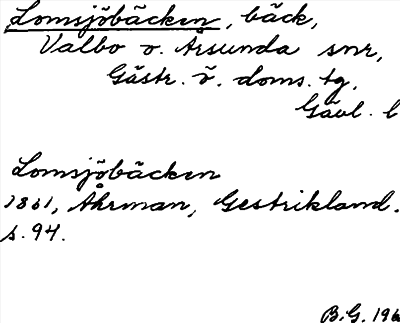 Lomsjöbäcken, bäck,
Valbo o. Årsunda snr,
Gästr. ö. doms. tg,
Gävl. l
Lomsjöbäcken
1861, Åhrman, Gestrikland.
s. 94.
B.G. 196